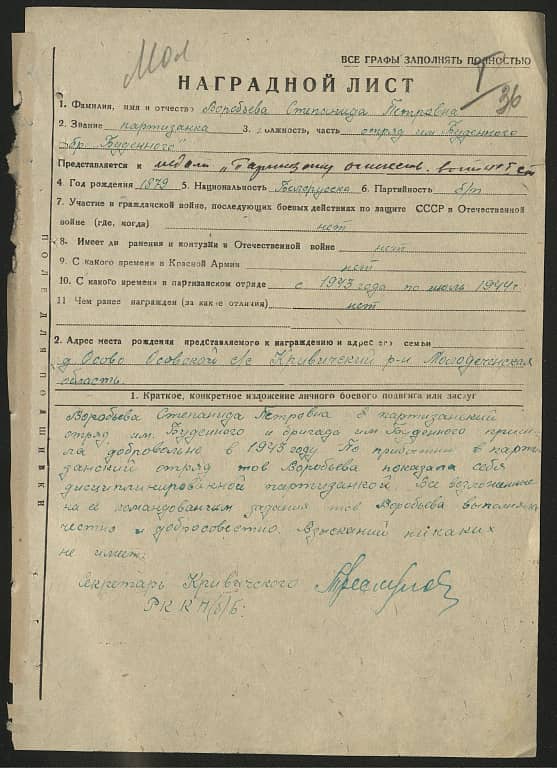 Мол
ВСЕ ГРАФЫ ЗАПОЛНЯТЬ ПОЛНОСТЬЮ
НАГРАДНОЙ ЛИСТ
36
1. Фамилия, имя и отчество Воробьева Степанида Петровна
2. Звание партизанка 3. Должность, часть отряд им Буденного
бр. Буденного"
Представляется к медали "Партизану отечеств. войны" II ст
4. Год рождения 1879 5. Национальность Белорусска 6. Партийность б/п
7. Участие в гражданской войне, последующих боевых действиях по защите СССР и Отечественной
войне (где, когда) нет
8. Имеет ли ранения и контузии в Отечественной войне нет
9. С какого времени в Красной Армии нет
10. С какого времени в партизанском отряде с 1943 года по июль 1944 г.
11 Чем ранее награжден (за какие отличия) нет
2. Адрес места рождения представляемого к награждению и адрес его семьи
д. Осово Осовской с/с Кривичский р-н Молодечнская
область.
1. Краткое, конкретное изложение личного боевого подвига или заслуг
Воробьева Степанида Петровна в партизанский
отряд им. Буденного и бригада им Буденного пришла
ла добровольно в 1943 году. По прибытии в парти-
занский отряд тов Воробьева показала себя
дисциплинированной партизанкой. Все возложенные
на её командованием задания тов Воробьева выполняла
честно и добросовестно. Взысканий никаких
не имеет.
Секретарь Кривичского
РК КП(б)Б:
ПОЛЕ ДЛЯ ПОДШИВКИ